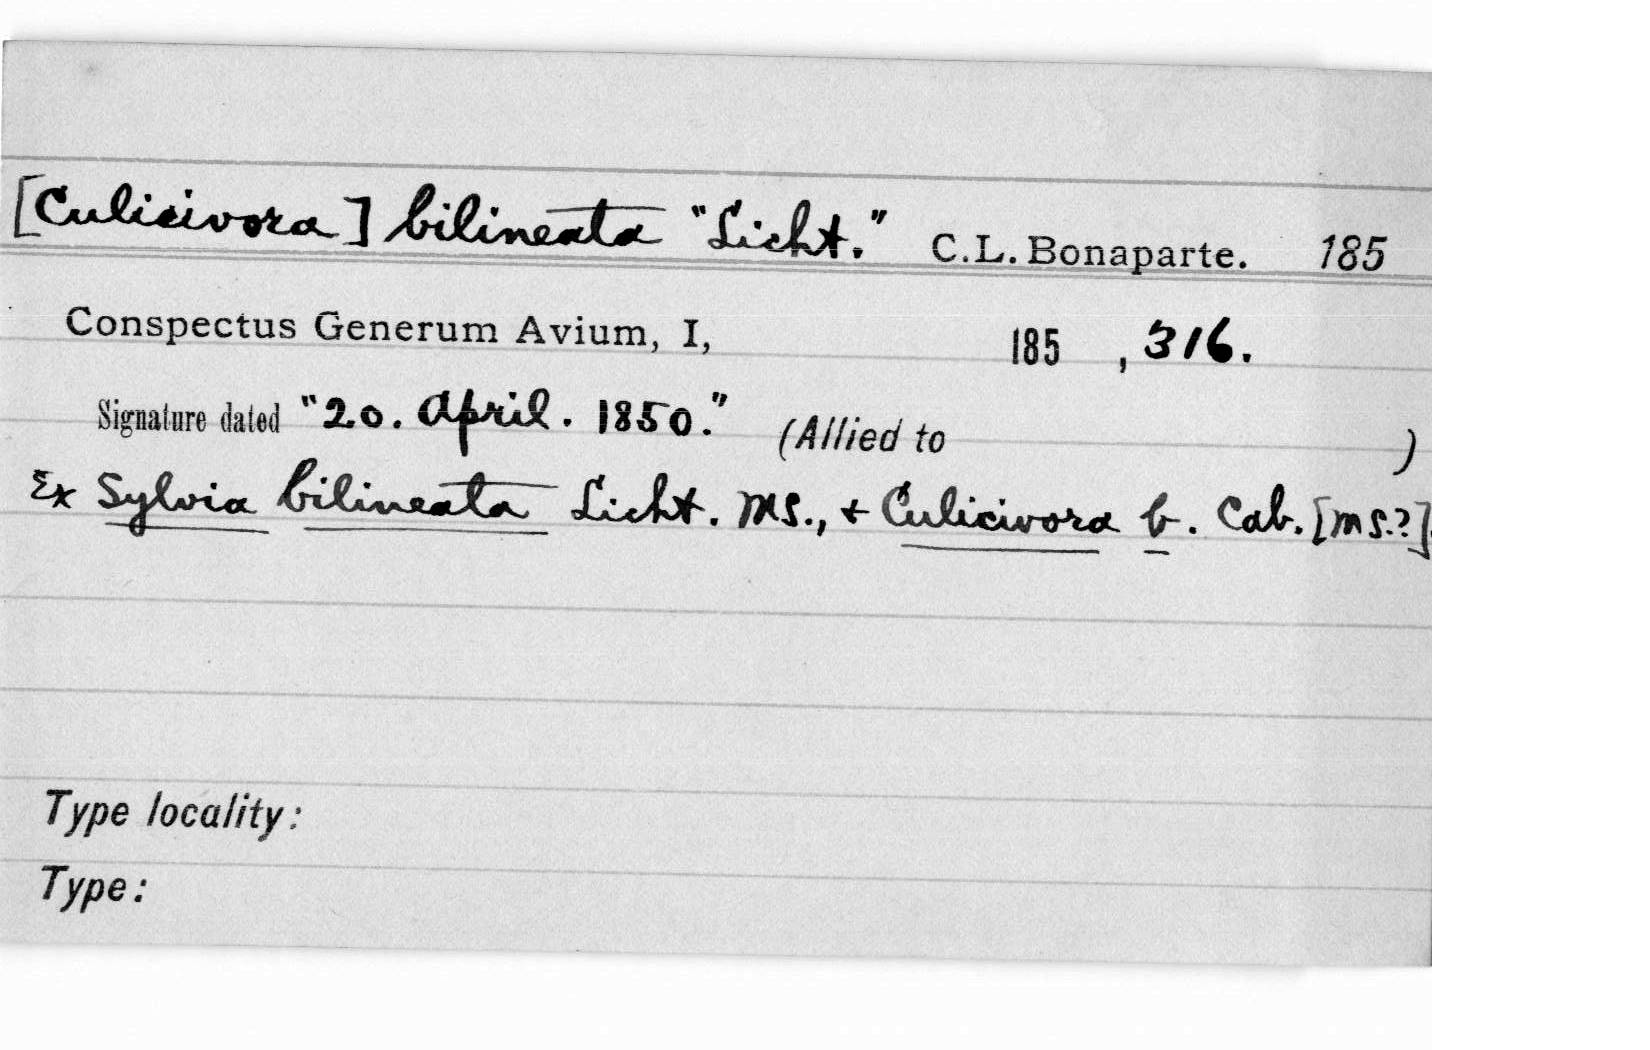 [Culicivora] bilineata "Licht." C.L. Bonaparte. 185
Conspectus Generum Avium, I, 185 , 316.
Signature dated "20. April. 1850." (Allied to )
Ex Sylvia bilineata Licht. MS., + Culicivora b. Cab. [MS.?].
Type locality:
Type: